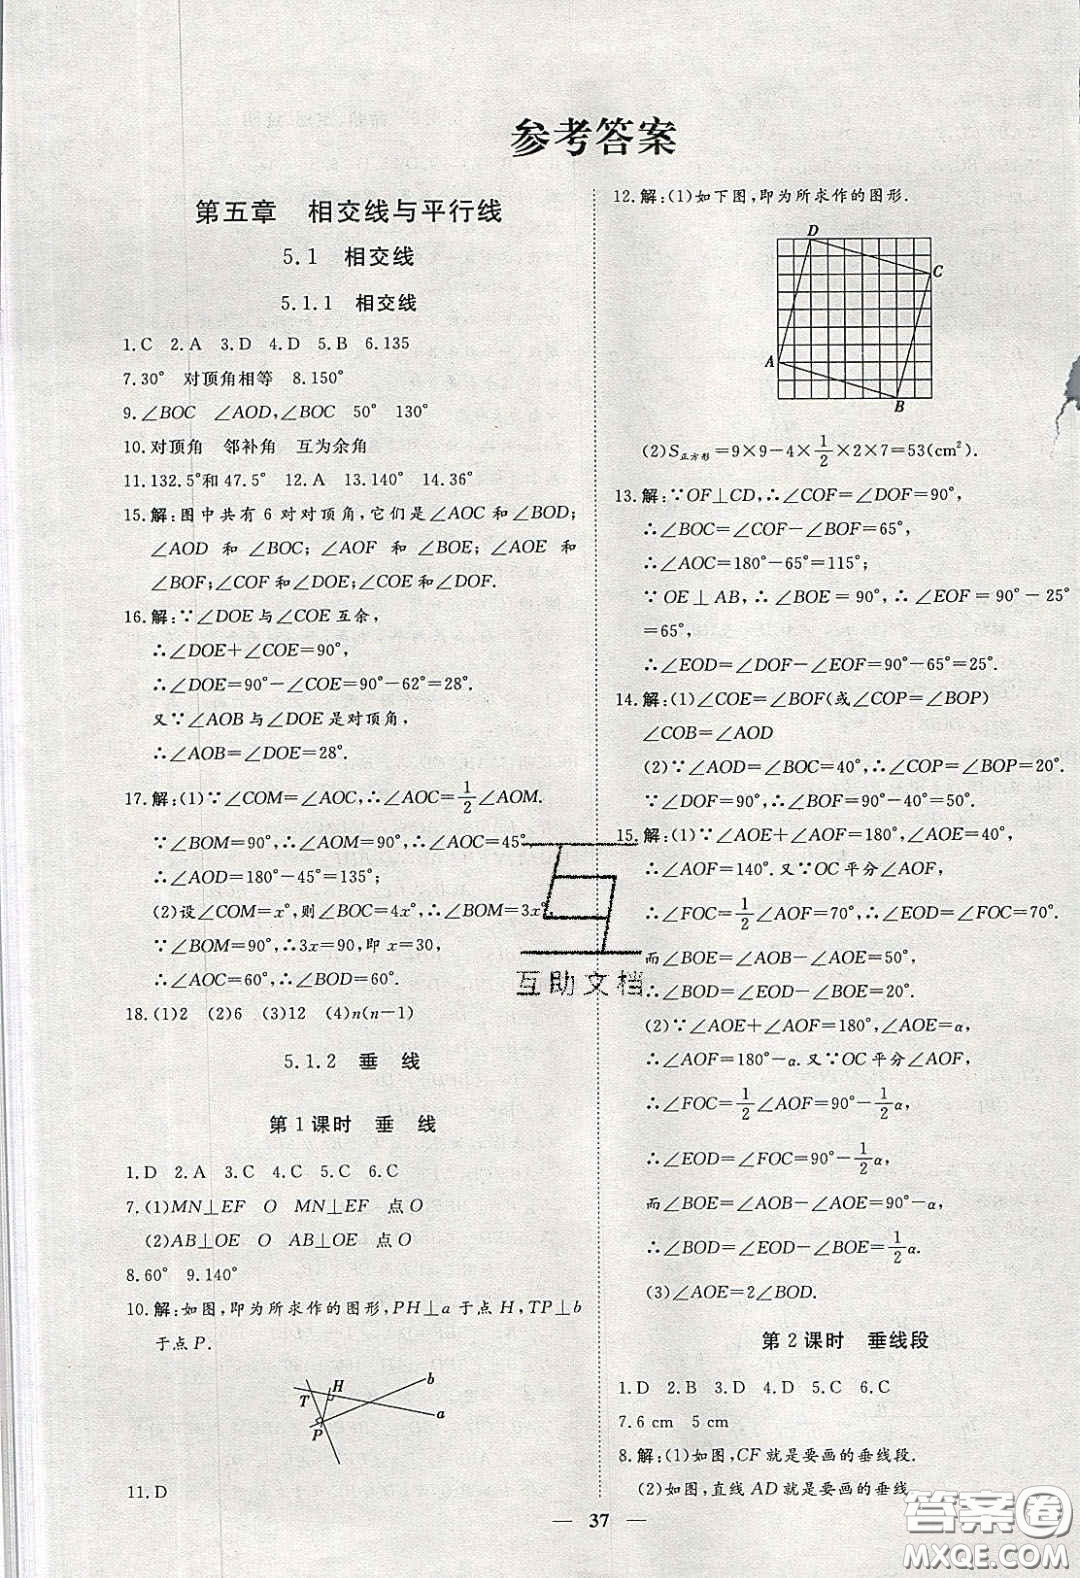 参考答案
第五章 相交线与平行线
5.1 相交线
5.1.1 相交线
1.C 2.A 3.D 4.D 5.B 6.135
7.30° 对顶角相等 8.150°
9.∠BOC ∠AOD,∠BOC 50° 130°
10.对顶角 邻补角 互为余角
11.132.5°和47.5° 12.A 13.140° 14.36°
15.解:图中共有6对对顶角,它们是∠AOC和∠BOD;
∠AOD 和 ∠BOC; ∠AOF 和 ∠BOE; ∠AOE 和
∠BOF;∠COF和∠DOE;∠COE和∠DOF.
16.解:∵∠DOE与∠COE互余,
∴∠DOE+∠COE=90°,
∴∠DOE=90°-∠COE=90°-62°=28°.
又∵∠AOB与∠DOE是对顶角,
∴∠AOB=∠DOE=28°.
17.解:(1)∵∠COM=∠AOC,∴∠AOC=1/2∠AOM.
∵∠BOM=90°,∴∠AOM=90°,∴∠AOC=45°,
∴∠AOD=180°-45°=135°;
(2)设∠COM=x°,则∠BOC=4x°,∴∠BOM=3x°.
∵∠BOM=90°,∴3x=90,即x=30,
∴∠AOC=60°,∴∠BOD=60°.
18.(1)2 (2)6 (3)12 (4)n(n-1)
5.1.2 垂 线
第1课时 垂 线
1.D 2.A 3.C 4.C 5.C 6.C
7.(1)MN⊥EF O MN⊥EF 点O
(2)AB⊥OE O AB⊥OE 点O
8.60° 9.140°
10.解:如图,即为所求作的图形,PH⊥a于点H,TP⊥b
于点P.
T
H
b
a
P
11.D
12.解:(1)如下图,即为所求作的图形.
D
C
A
B
(2)S正方形=9×9-4×1/2×2×7=53(cm²).
13.解:∵OF⊥CD,∴∠COF=∠DOF=90°,
∴∠BOC=∠COF-∠BOF=65°,
∴∠AOC=180°-65°=115°;
∵OE⊥AB,∴∠BOE=90°,∴∠EOF=90°-25°
=65°,
∴∠EOD=∠DOF-∠EOF=90°-65°=25°.
14.解:(1)∠COE=∠BOF(或∠COP=∠BOP)
∠COB=∠AOD
(2)∵∠AOD=∠BOC=40°,∴∠COP=∠BOP=20°.
∵∠DOF=90°,∴∠BOF=90°-40°=50°.
15.解:(1)∵∠AOE+∠AOF=180°,∠AOE=40°,
∴∠AOF=140°.又∵OC平分∠AOF,
∴∠FOC=1/2∠AOF=70°,∴∠EOD=∠FOC=70°.
而∠BOE=∠AOB-∠AOE=50°,
∴∠BOD=∠EOD-∠BOE=20°.
(2)∵∠AOE+∠AOF=180°,∠AOE=α,
∴∠AOF=180°-α.又∵OC平分∠AOF,
∴∠FOC=1/2∠AOF=90°-1/2α,
∴∠EOD=∠FOC=90°-1/2α,
而∠BOE=∠AOB-∠AOE=90°-α,
∴∠BOD=∠EOD-∠BOE=1/2α.
(3)∠AOE=2∠BOD.
第2课时 垂线段
1.D 2.B 3.D 4.D 5.C 6.C
7.6 cm 5 cm
8.解:(1)如图,CF就是要画的垂线段.
(2)如图,直线AD就是要画的垂线
互助文档
— 37 —
答案圈
MXQE.COM